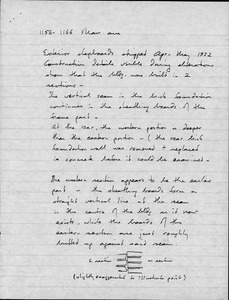 1156-1166 Main ave
Exterior clapboards stripped Apr-May 1972
Construction details visible during alterations
show that the bldg. was built in 2
sections -
The vertical seam in the brick foundation
continues in the sheathing boards of the
frame part -
At the rear, the western portion is deeper
than the eastern portion - (the rear brick
foundation wall was removed & replaced
in concrete before it could be examined.
The western section appears to be the earlier
part - the sheathing boards form a
straight vertical line at the seam
in the centre of the bldg as it now
exists, while the boards of the
eastern section are just roughly
butted up against said seam.
E section
W section
(slightly exaggerated to illustrate point)